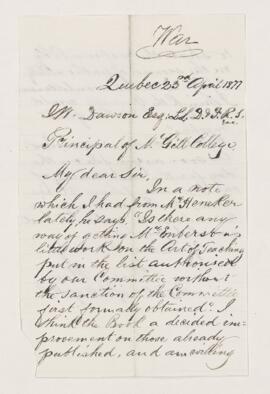 War
Quebec 25th April 1877
J.W. Dawson Esq. LL.D. F.R.S.
&c.
Principal of McGill College
My dear Sir,
In a note
which I had from Mr Heneker
lately he says "Is there any
way of getting Mr Emberson's
little work on the Art of Teaching
put in the list authorised
by our Committee without
the sanction of the Committee
first formally obtained". I
think the Book a decided im-
provement on those already
published, and am willing